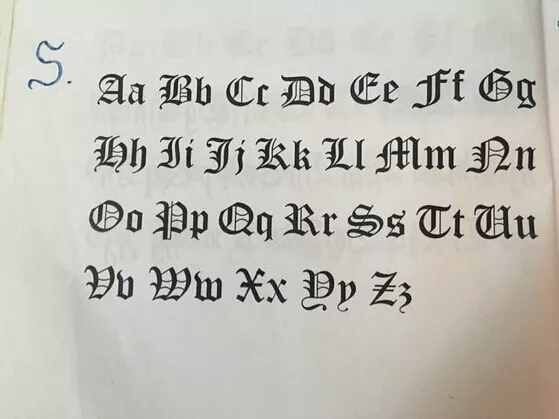 5.
Aa Bb Cc Dd Ee Ff Gg
Hh Ii Jj Kk Ll Mm Nn
Oo Pp Qq Rr Ss Tt Uu
Vv Ww Xx Yy Zz